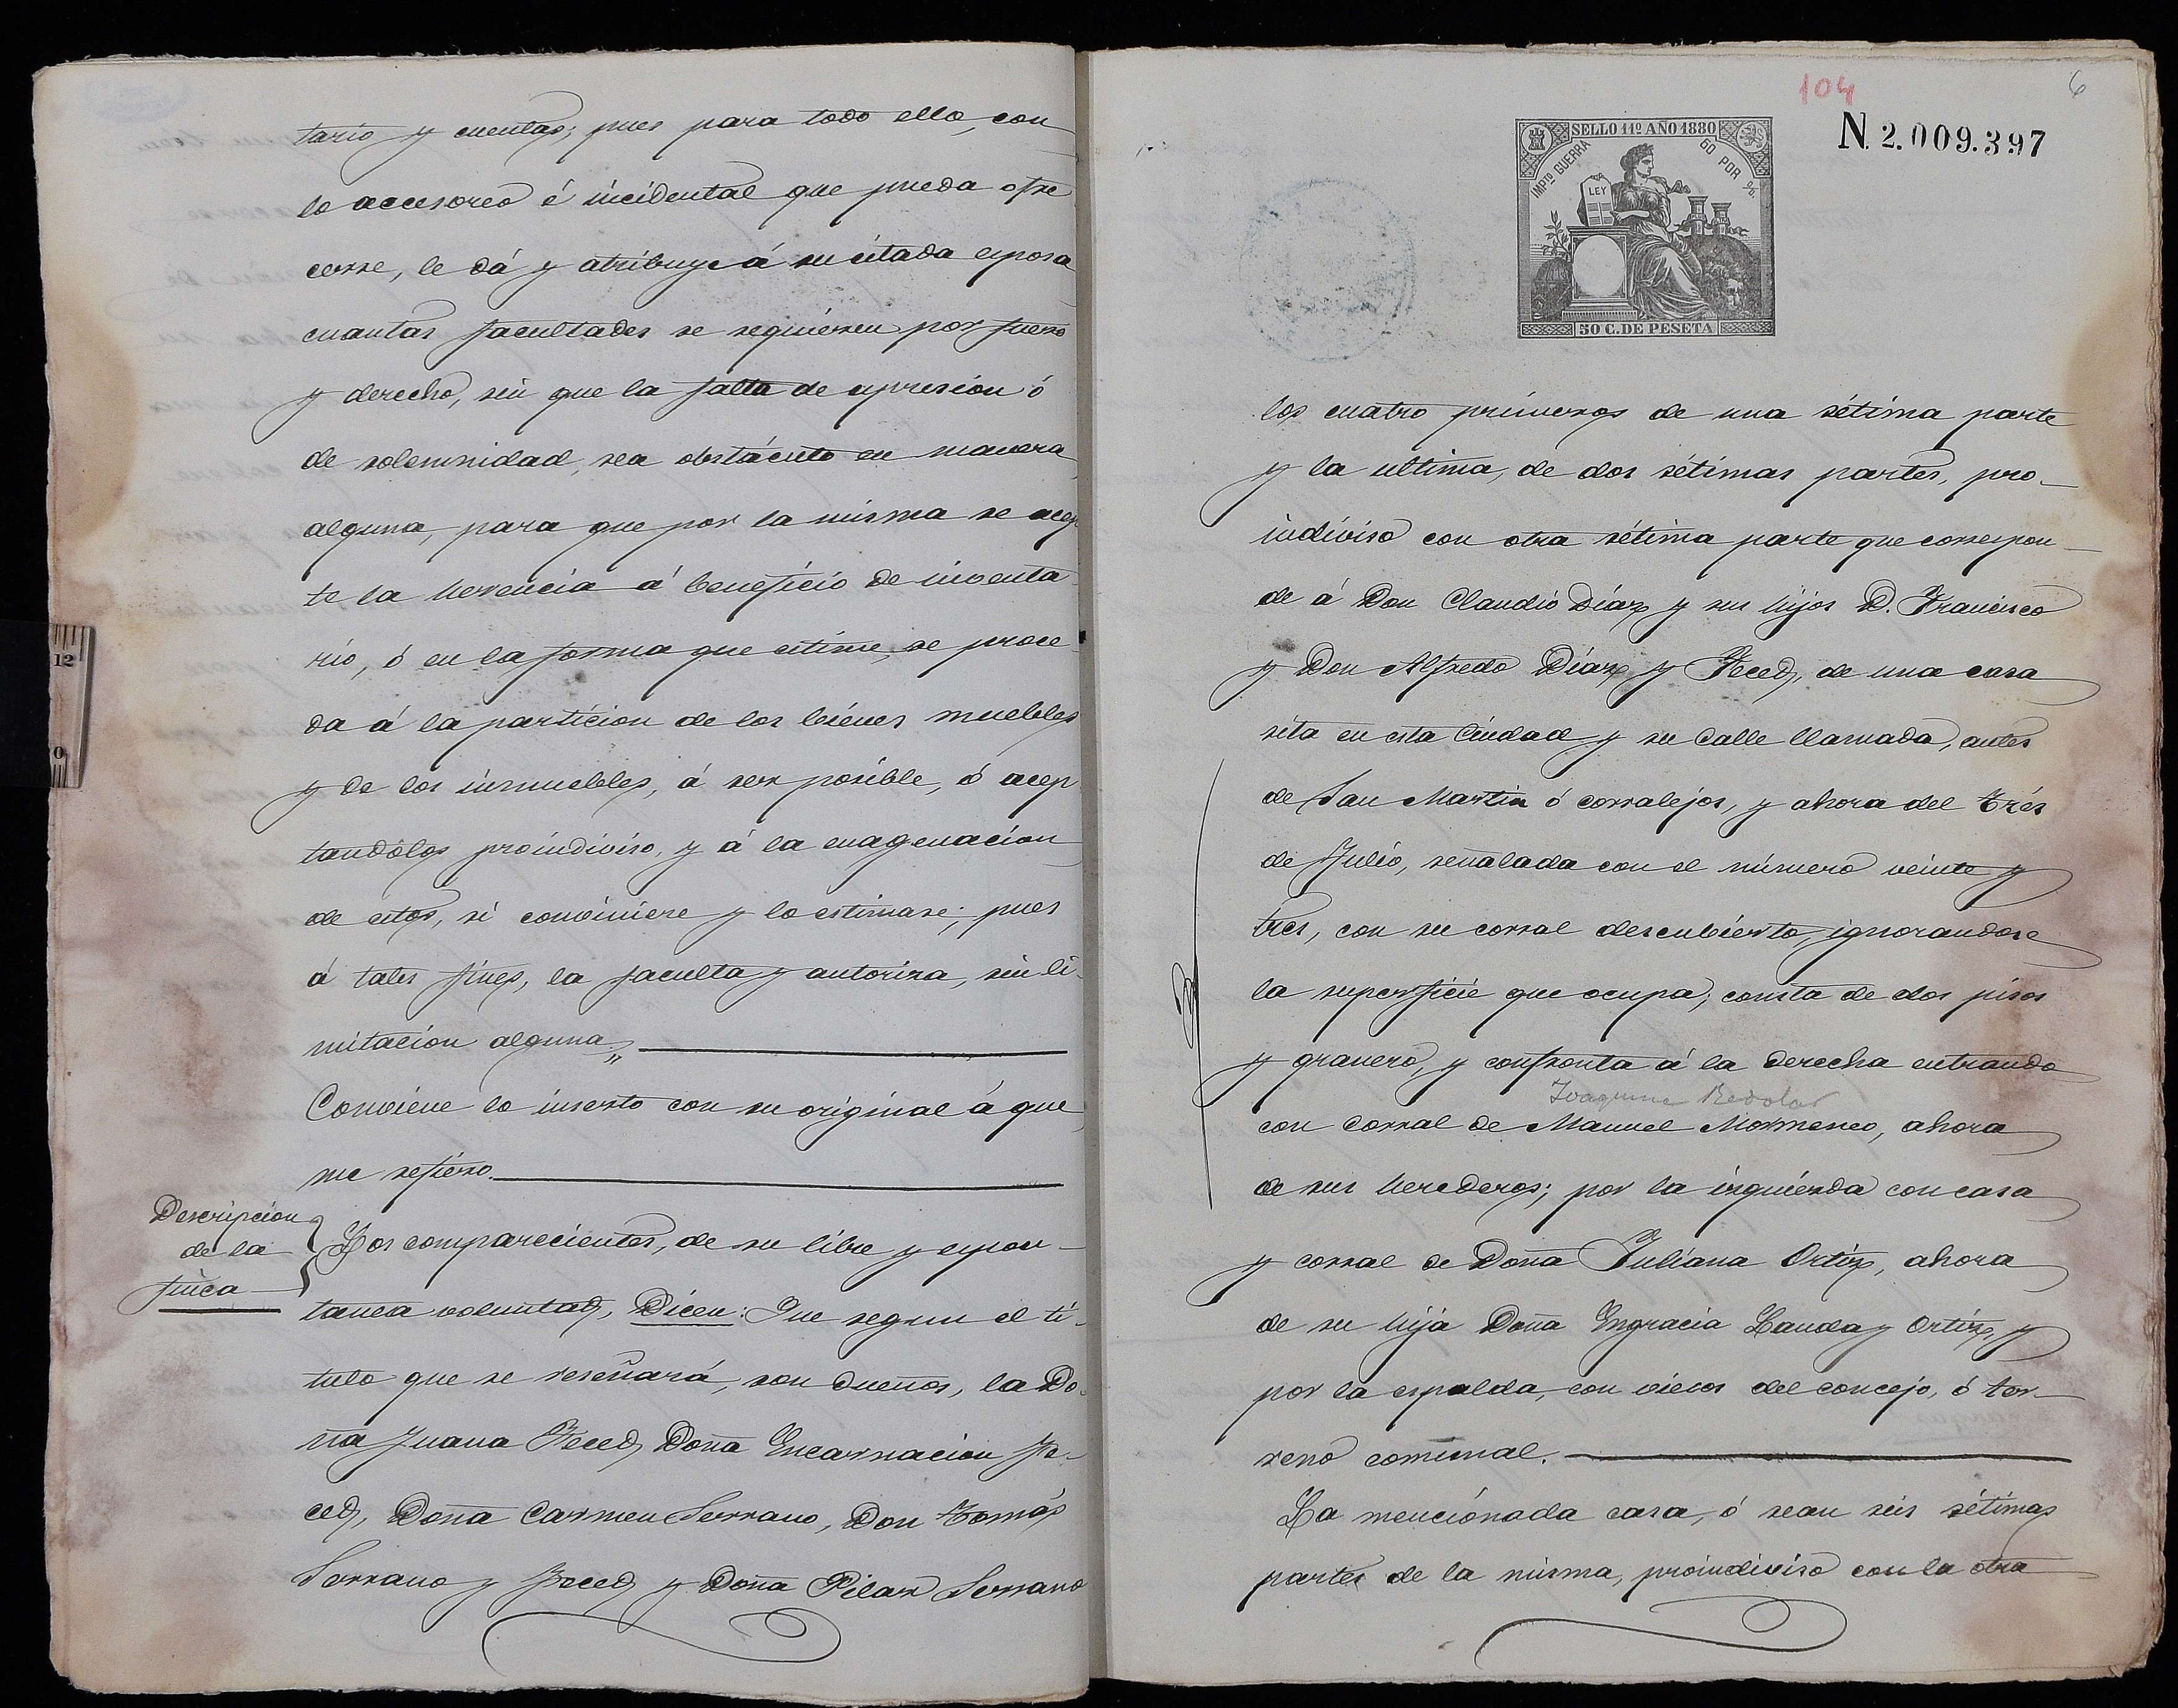 tario y cuentas; pues para todo ello, con
lo accesoreo é incidental que pueda ofre
cerse, le dá y atribuye á su citada esposa
cuantas facultades se requieren por fuero
y derecho, sin que la falta de expresion ó
de solemnidad, sea obstáculo en manera
alguna, para que por la misma se acep
te la herencia á beneficio de inventa
rio, ó en la forma que estime, se proce
da á la particion de los bienes muebles
y de los inmuebles, á ser posible, ó acep
tandolos proindiviso, y á la enagenacion
de estos, si conviniere y lo estimase; pues
á tales fines, la faculta y autoriza, sin li-
mitacion alguna„
Conviene lo inserto con su original á que
me refiero.
Descripcion
de la
finca
Los comparecientes, de su libre y espon-
tanea voluntad, Dicen: Que segun el tí-
tulo que se reseñará, son dueños, la Do-
ña Juana Feced, Doña Encarnacion Fe-
ced, Doña Carmen Serrano, Don Tomás
Serrano y Feced y Doña Pilar Serrano
104
6
N. 2.009.397
SELLO 11º AÑO 1880
IMPTO GUERRA
60 POR %
LEY
50 C. DE PESETA
los cuatro primeros de una sétima parte
y la ultima, de dos sétimas partes, pro-
indiviso con otra sétima parte que correspon-
de á Don Claudio Díaz y sus hijos D. Francisco
y Don Alfredo Díaz y Feced, de una casa
sita en esta Ciudad y su Calle llamada, antes
de San Martin ó corralejos, y ahora del Trés
de Julio, señalada con el número veinte y
tres, con su corral descubierto, ignorandose
la superficie que ocupa; consta de dos pisos
y granero, y confronta á la derecha entrando
Joaquina Redolar
con corral de Manuel Mormeneo, ahora
de sus herederos; por la izquierda con casa
y corral de Doña Juliana Ortiz, ahora
de su hija Doña Engracia Landa y Ortiz, y
por la espalda, con viecos del concejo, ó ter-
reno comunal.
La mencionada casa, ó sean seis sétimas
partes de la misma, proindiviso con la otra